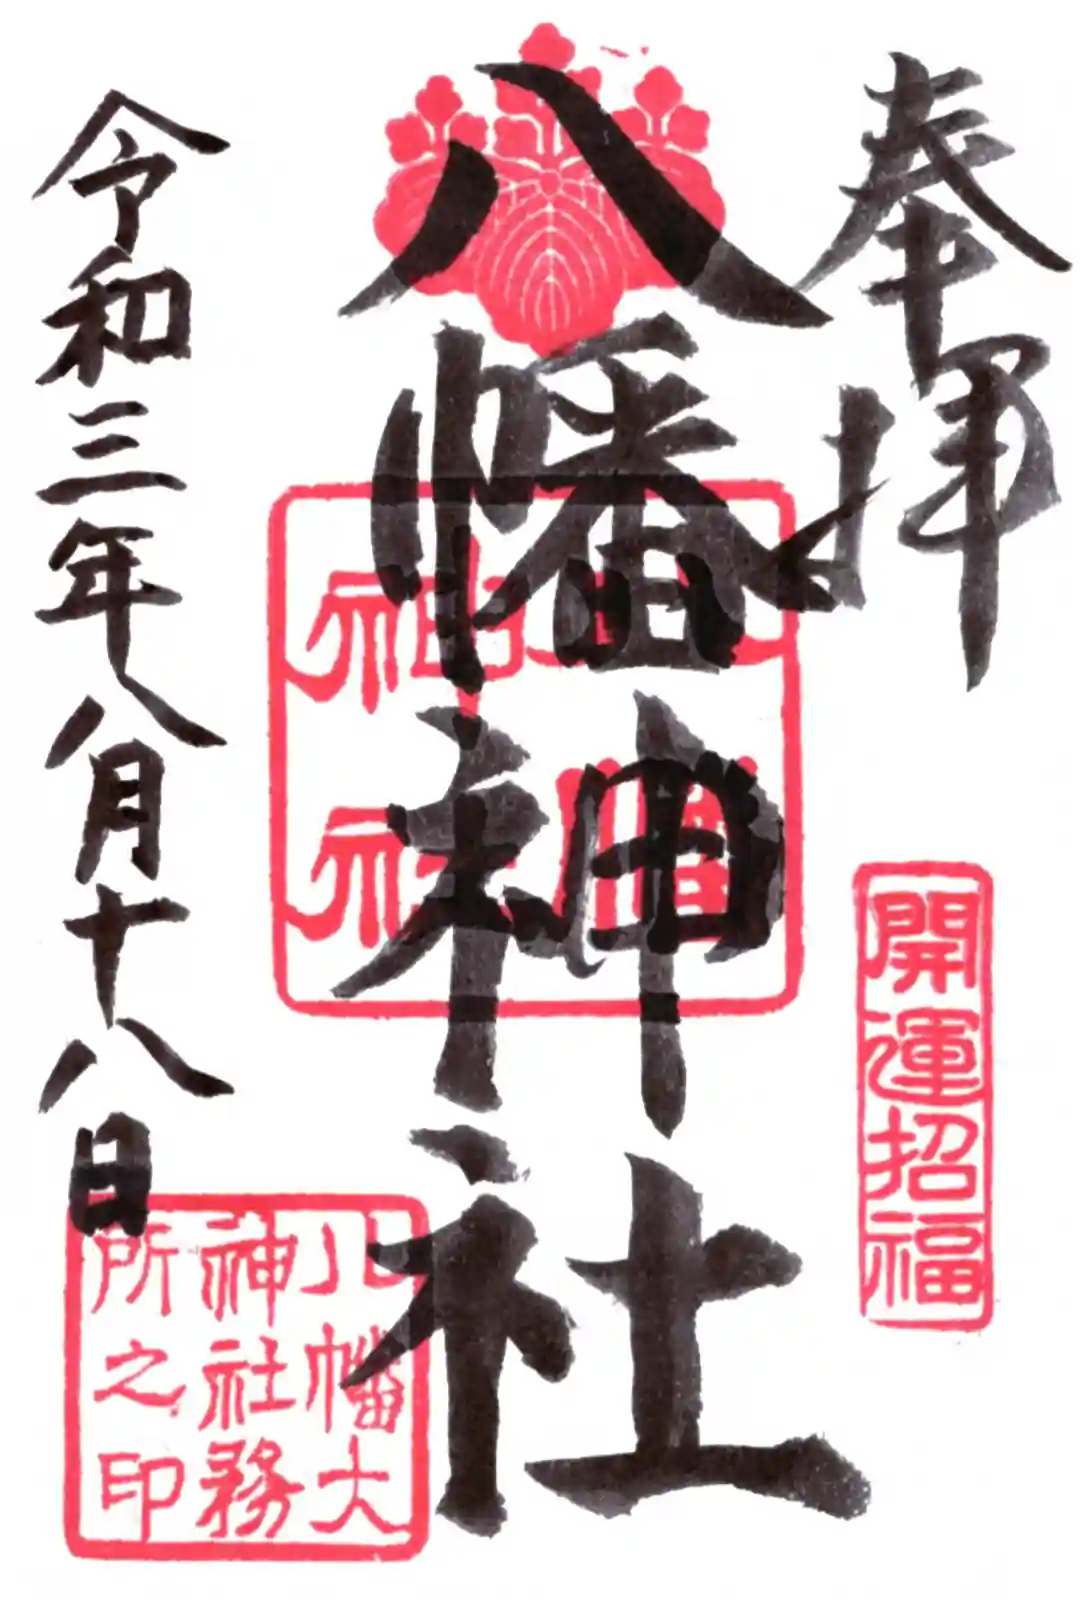 奉拝
開運招福
八幡神社
八幡
神社
令和三年八月十八日
八幡大
神社務
所之印